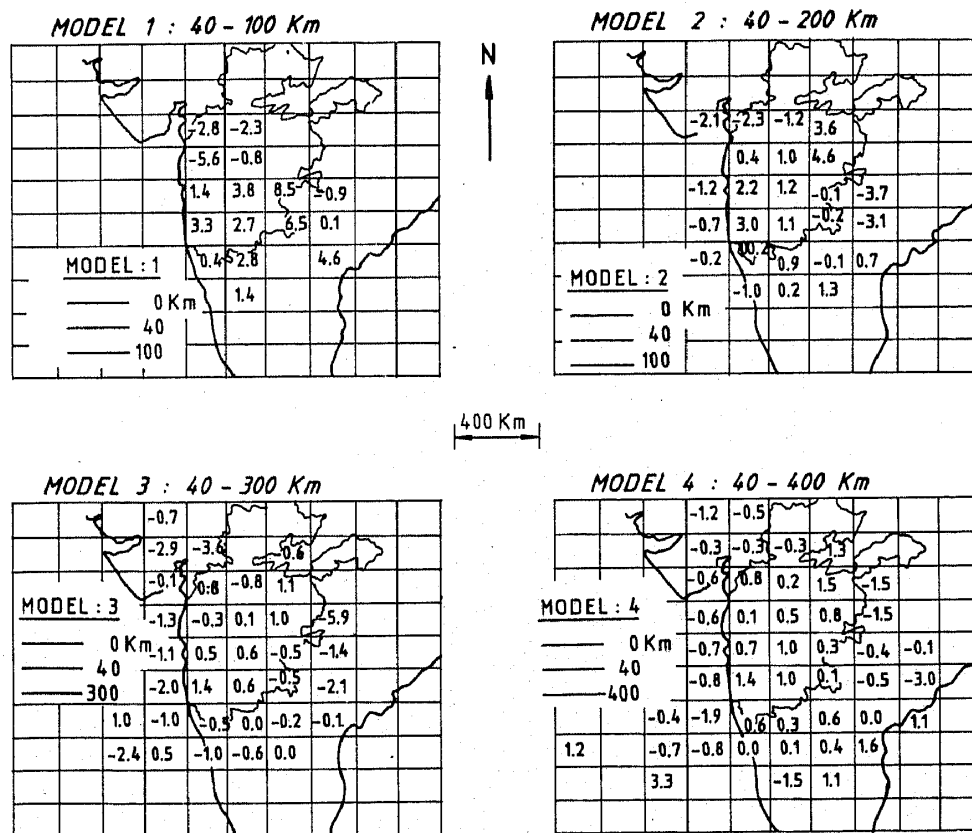 MODEL 1 : 40 - 100 Km
MODEL 2 : 40 - 200 Km
N
-2.8 -2.3
-5.6 -0.8
1.4 3.8 8.5 -0.9
3.3 2.7 6.5 0.1
0.4 2.8 4.6
1.4
MODEL : 1
0 Km
40
100
-2.1 -2.3 -1.2 3.6
0.4 1.0 4.6
-1.2 2.2 1.2 -0.1 -3.7
-0.7 3.0 1.1 -0.2 -3.1
-0.2 0.9 -0.1 0.7
-1.0 0.2 1.3
MODEL : 2
0 Km
40
100
400 Km
MODEL 3 : 40 - 300 Km
MODEL 4 : 40 - 400 Km
-0.7
-2.9 -3.6 0.6
-0.1 0.8 -0.8 1.1
-1.3 -0.3 0.1 1.0 -5.9
-1.1 0.5 0.6 -0.5 -1.4
-2.0 1.4 0.6 -0.5 -2.1
1.0 -1.0 -0.5 0.0 -0.2 -0.1
-2.4 0.5 -1.0 -0.6 0.0
MODEL : 3
0 Km
40
300
-1.2 -0.5
-0.3 -0.3 -0.3 1.3
-0.6 0.8 0.2 1.5 -1.5
-0.6 0.1 0.5 0.8 -1.5
-0.7 0.7 1.0 0.3 -0.4 -0.1
-0.8 1.4 1.0 0.1 -0.5 -3.0
-0.4 -1.9 0.6 0.3 0.6 0.0 1.1
1.2 -0.7 -0.8 0.0 0.1 0.4 1.6
3.3 -1.5 1.1
MODEL : 4
0 Km
40
400